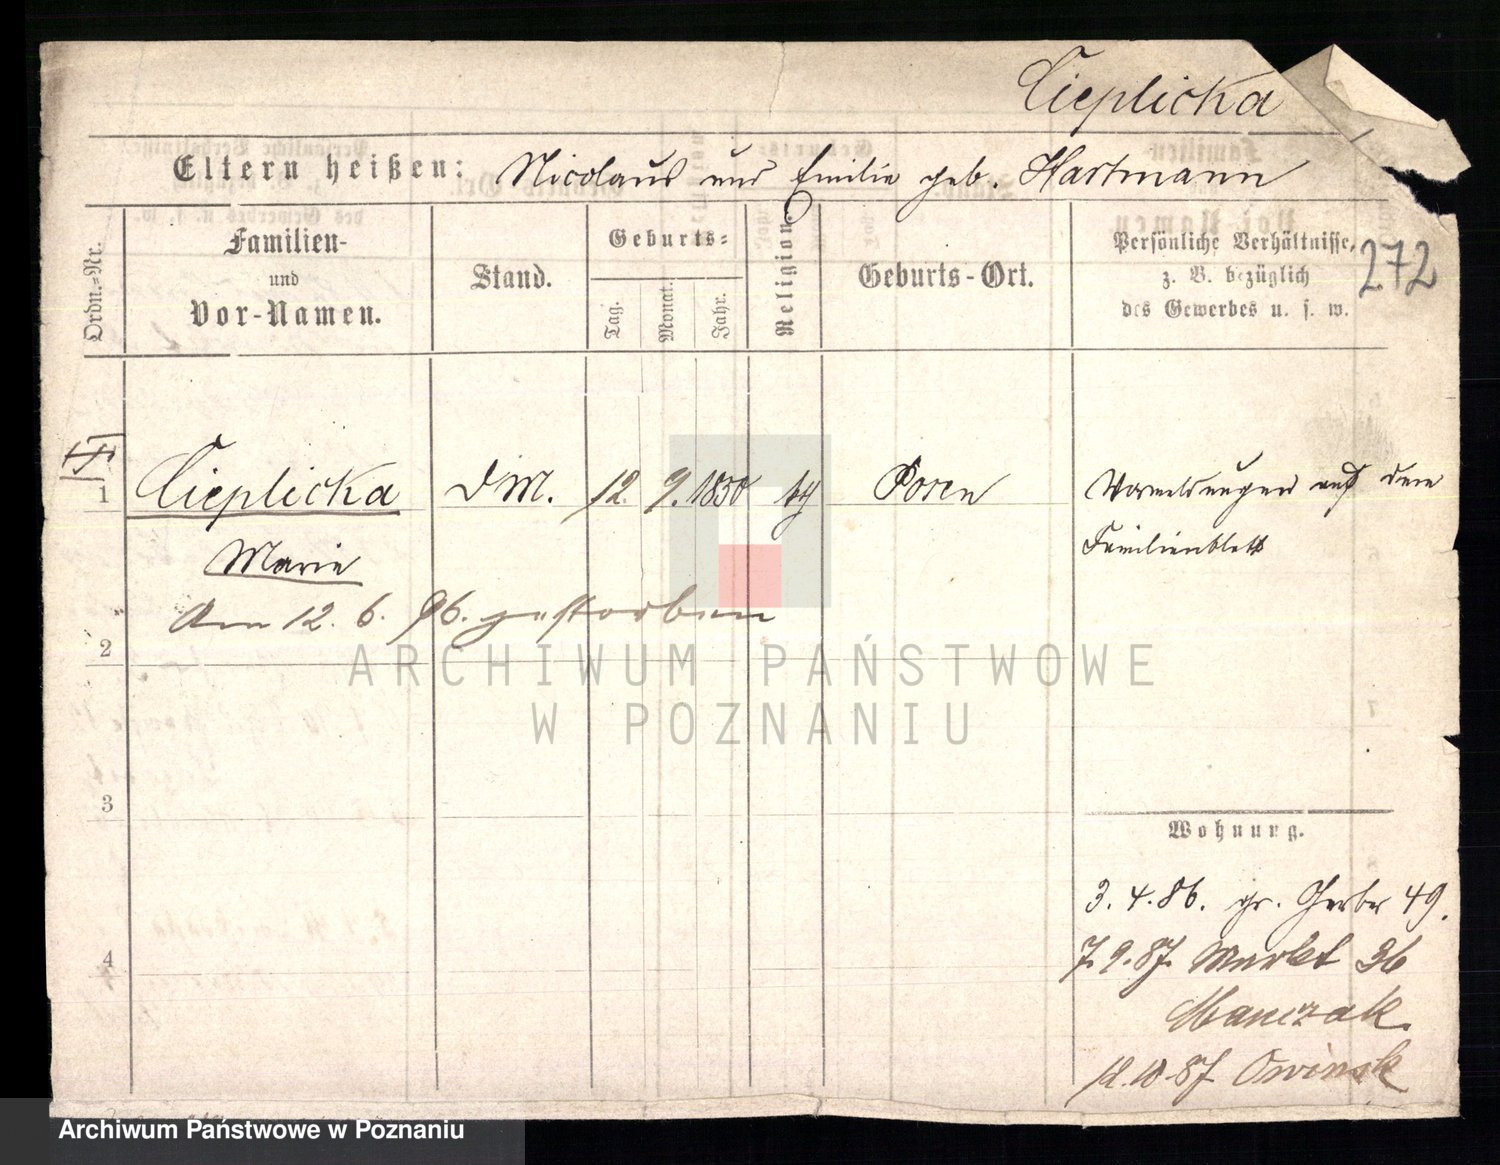 Cieplicka
Eltern heißen: Nicolaus und Emilie geb. Hartmann
272
Ordn.-Nr.
Familien-
und
Vor-Namen.
Stand.
Geburts-
Tag.
Monat.
Jahr.
Religion.
Geburts-Ort.
Persönliche Verhältnisse,
z. B. bezüglich
des Gewerbes u. s. w.
1 Cieplicka DM. 12. 9. 1830 Posen Vormeldungen auf dem
Marie Familienblatt
Am 12. 6. 96. gestorben
2
ARCHIWUM PAŃSTWOWE
W POZNANIU
3
Wohnung.
3. 4. 86. gr. Gerber 49.
4
7. 9. 87. Markt 36
Manczak
12. 10. 87 Owinsk
Archiwum Państwowe w Poznaniu